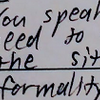 You speak
eed to
the sit
formality